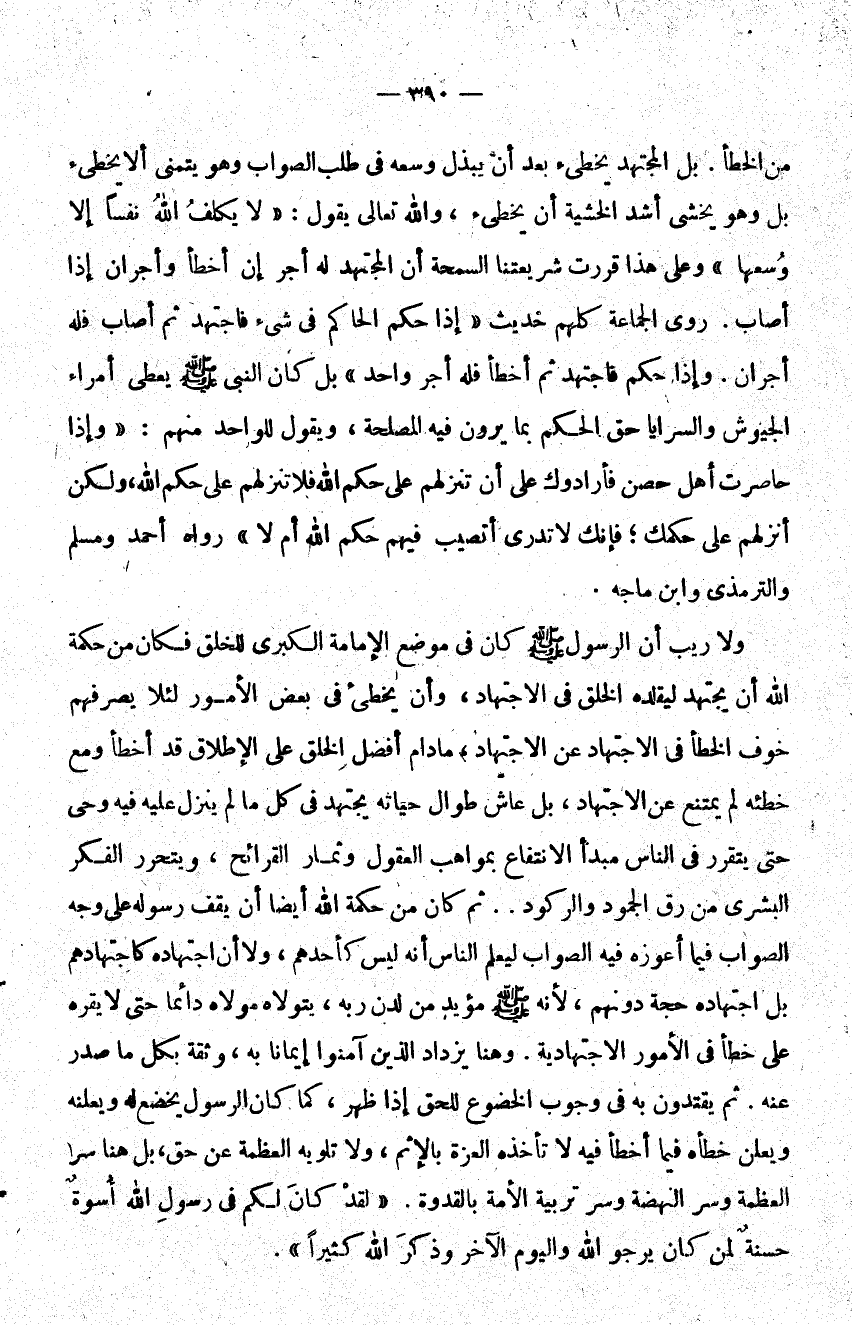 — ٣٩٠ —
من الخطأ . بل المجتهد يخطىء بعد أنْ يبذل وسعه فى طلب الصواب وهو يتمنى ألا يخطىء
بل وهو يخشى أشد الخشية أن يخطىء ، والله تعالى يقول : « لا يكلفُ اللهُ نفساً إلا
وُسعها » وعلى هذا قررت شريعتنا السمحة أن المجتهد له أجر إن أخطأ وأجران إذا
أصاب . روى الجماعة كلهم حديث « إذا حكم الحاكم فى شىء فاجتهد ثم أصاب فله
أجران . وإذا حكم فاجتهد ثم أخطأ فله أجر واحد » بل كان النبى ﷺ يعطى أمراء
الجيوش والسرايا حق الحـكم بما يرون فيه المصلحة ، ويقول للواحد منهم : « وإذا
حاصرت أهل حصن فأرادوك على أن تنزلهم على حكم الله فلا تنزلهم على حكم الله، ولـكن
أنزلهم على حكمك ؛ فإنك لا تدرى أتصيب فيهم حكم الله أم لا » رواه أحمد ومسلم
والترمذى وابن ماجه .
ولا ريب أن الرسول ﷺ كان فى موضع الإمامة الـكبرى للخلق فـكان من حكمة
الله أن يجتهد ليقلده الخلق فى الاجتهاد ، وأن يخطئ فى بعض الأمـور لئلا يصرفهم
خوف الخطأ فى الاجتهاد عن الاجتهاد ، مادام أفضل الخلق على الإطلاق قد أخطأ ومع
خطئه لم يمتنع عن الاجتهاد ، بل عاش طوال حياته يجتهد فى كل ما لم ينزل عليه فيه وحى
حتى يتقرر فى الناس مبدأ الانتفاع بمواهب العقول وثمـار القرائح ، ويتحرر الفـكر
البشرى من رق الجمود والركود . . ثم كان من حكمة الله أيضا أن يقف رسوله على وجه
الصواب فيما أعوزه فيه الصواب ليعلم الناس أنه ليس كأحدهم ، ولا أن اجتهاده كاجتهادهم
بل اجتهاده حجة دونهم ، لأنه ﷺ مؤيد من لدن ربه ، يتولاه مولاه دائما حتى لا يقره
على خطأ فى الأمور الاجتهادية . وهنا يزداد الذين آمنوا إيمانا به ، وثقة بكل ما صدر
عنه . ثم يقتدون به فى وجوب الخضوع للحق إذا ظهر ، كما كان الرسول يخضع له ويعلنه
ويعلن خطأه فيما أخطأ فيه لا تأخذه العزة بالإثم ، ولا تلويه العظمة عن حق، بل هنا سر
العظمة وسر النهضة وسر تربية الأمة بالقدوة . « لقدْ كانَ لـكم فى رسولِ الله أُسوةٌ
حسنةٌ لمن كان يرجو الله واليوم الآخر وذكرَ الله كثيراً » .